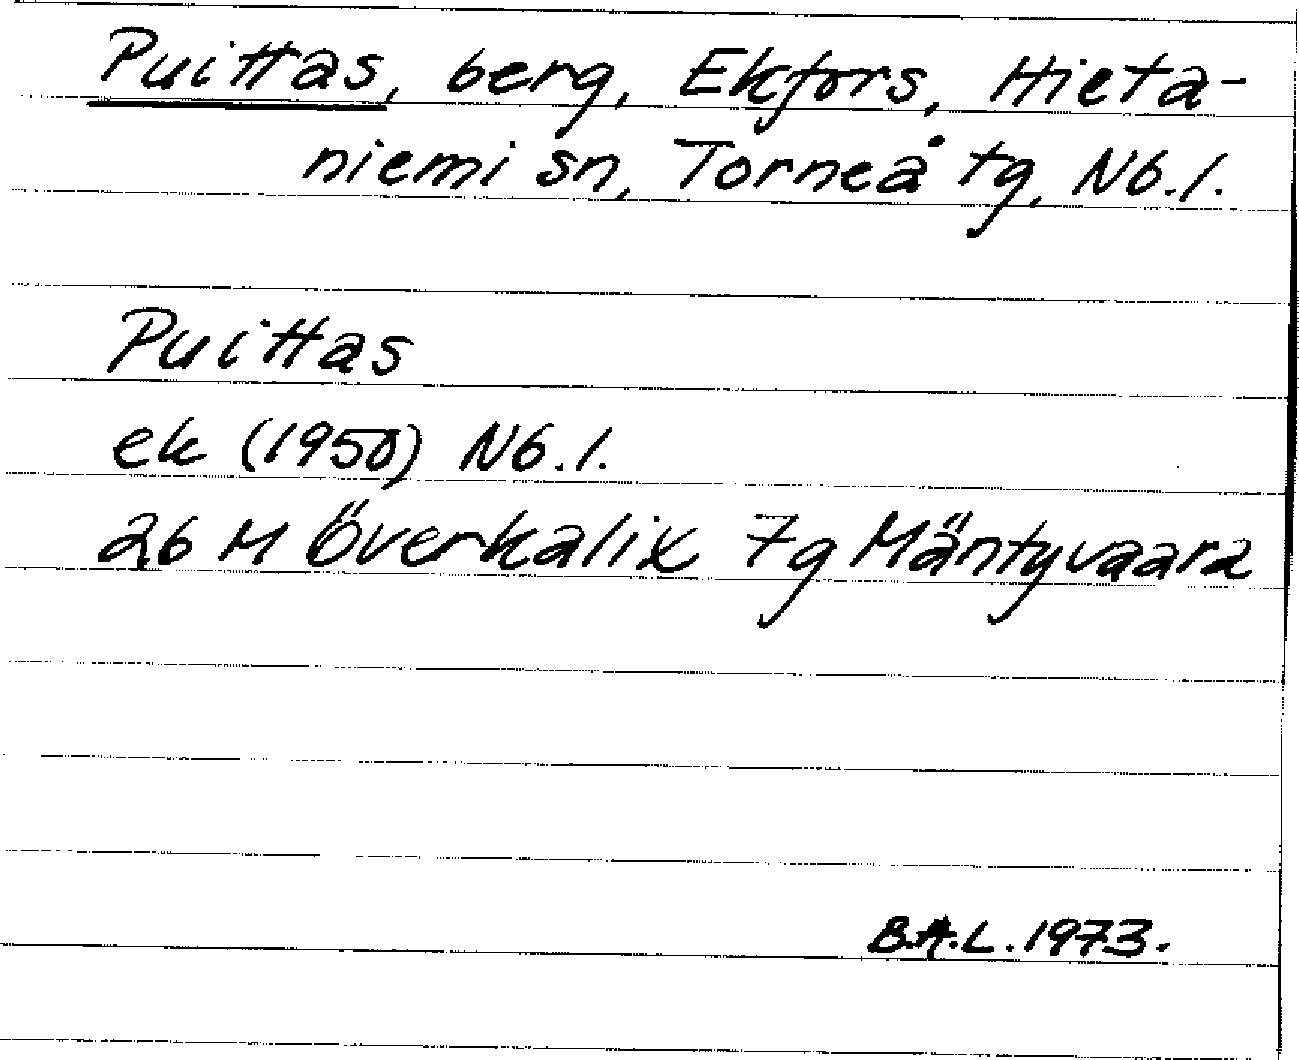 Puittas, berg, Ekfors, Hieta-
niemi sn, Torneå tg, Nb.l.
Puittas
ek (1950) Nb.l.
26 M Överkalix 7g Mäntyvaara
B.A.L. 1973.